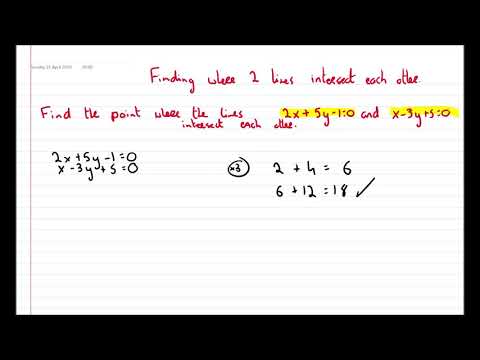 Sunday 21 April 2019
Finding where 2 lines intersect each other.
Find the point where the lines 2x + 5y - 1 = 0 and x - 3y + 5 = 0
intersect each other.
2x + 5y - 1 = 0
x - 3y + 5 = 0
×3 2 + 4 = 6
6 + 12 = 18 ✓